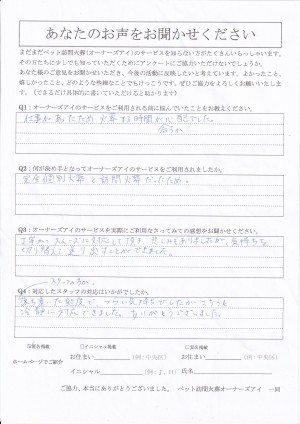 あなたのお声をお聞かせください
まだまだペット訪問火葬(オーナーズアイ)のサービスを知らない方がたくさんいらっしゃいます。
その方たちに少しでも知っていただくためにアンケートにご協力いただけないでしょうか。
あなた様のご意見をお聞かせいただき、今後の活動に反映したいと考えています。よかったこと、
嬉しかったこと、どのような些細なことでもけっこうです。ぜひご協力をよろしくお願いいたします。
(できるだけ具体的に書いていただけると助かります)
Q1:オーナーズアイのサービスをご利用される前に悩んでいたことをお教えください。
仕事があったため 火葬する時間が心配でした。
Q2:何が決め手となってオーナーズアイのサービスをご利用されましたか。
完全個別火葬と訪問火葬だったため。
Q3:オーナーズアイのサービスを実際にご利用なさってみての感想をお聞かせください
丁寧かつスムーズに対応して頂き 悲しみもありましたが、気持ちを
切り替えて送り出すことができました。
スタッフの方が、
Q4:対応したスタッフの対応はいかがでしたか。
落ち着いた態度で、つらい気持ちでしたが こちらも
冷静に対応できました。ありがとうございました。
①匿名掲載 ②イニシャル掲載
ホームページでご紹介 お住まい (例:中央区) お住まい (例:中央区)
イニシャル (例:J.H)
ご協力、本当にありがとうございました。 ペット訪問火葬オーナーズアイ 一同